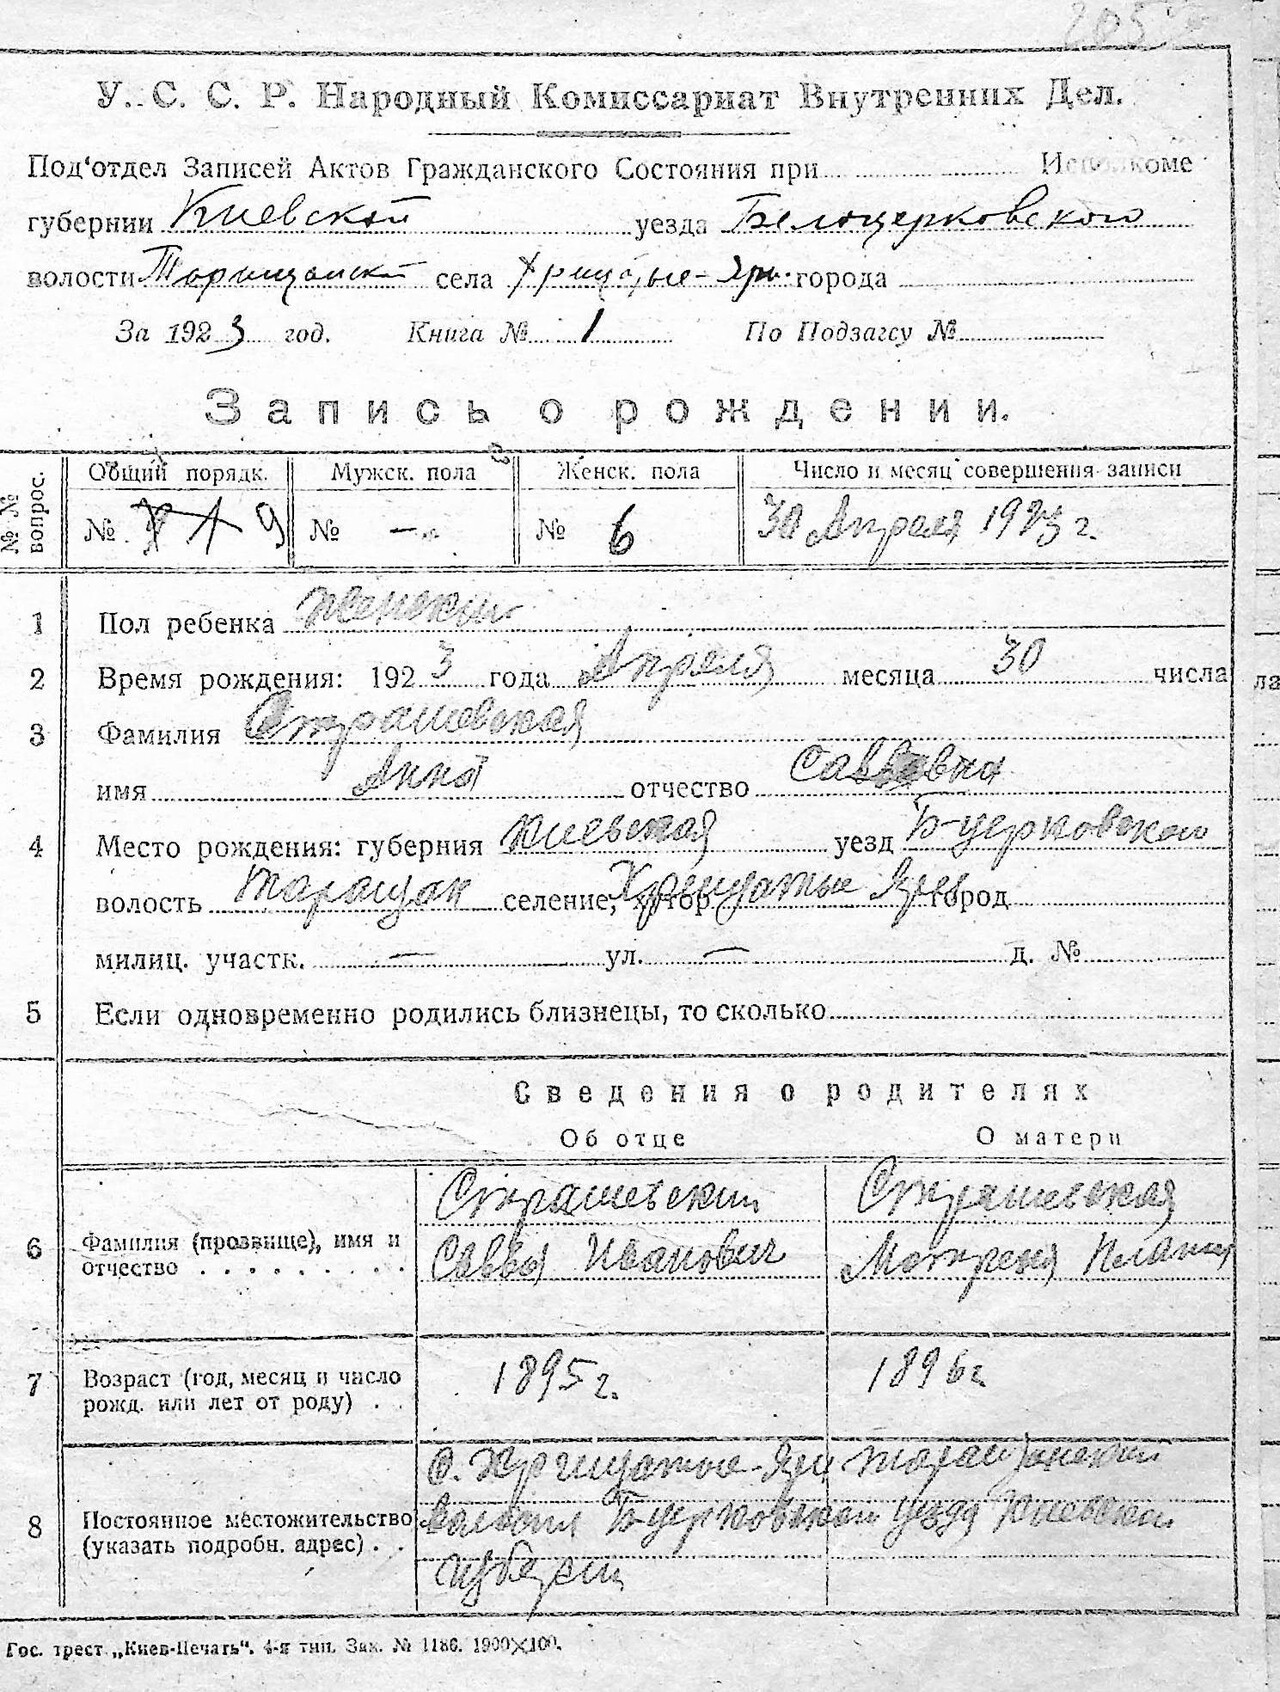 205
У. С. С. Р. Народный Комиссариат Внутренних Дел.
Под‘отдел Записей Актов Гражданского Состояния при Исполкоме
губернии Киевской уезда Белоцерковского
волости Таращанской села города
За 1923 год. Книга № 1 По Подзагсу №
Запись о рождении.
№ № вопрос. Общий порядк. Мужск. пола Женск. пола Число и месяц совершения записи
№ 9 № — № 6 30 Апреля 1923 г.
1 Пол ребенка женский
2 Время рождения: 1923 года Апреля месяца 30 числа
3 Фамилия Страшевская
имя Анна отчество Саввовна
4 Место рождения: губерния Киевская уезд Б-церковского
волость Таращан селение, хутор город
милиц. участк. — ул. — д. №
5 Если одновременно родились близнецы, то сколько
Сведения о родителях
Об отце О матери
6 Фамилия (прозвище), имя и отчество Страшевский Савва Иванович Страшевская Мотреня
7 Возраст (год, месяц и число рожд. или лет от роду) 1895 г. 1896 г.
8 Постоянное местожительство (указать подробн. адрес) с. Таращанской
волости Б-церковской уезда Киевской
губерни
Гос. трест „Киев-Печать“. 4-я тип. Зак. № 1186. 1900×100.
ла